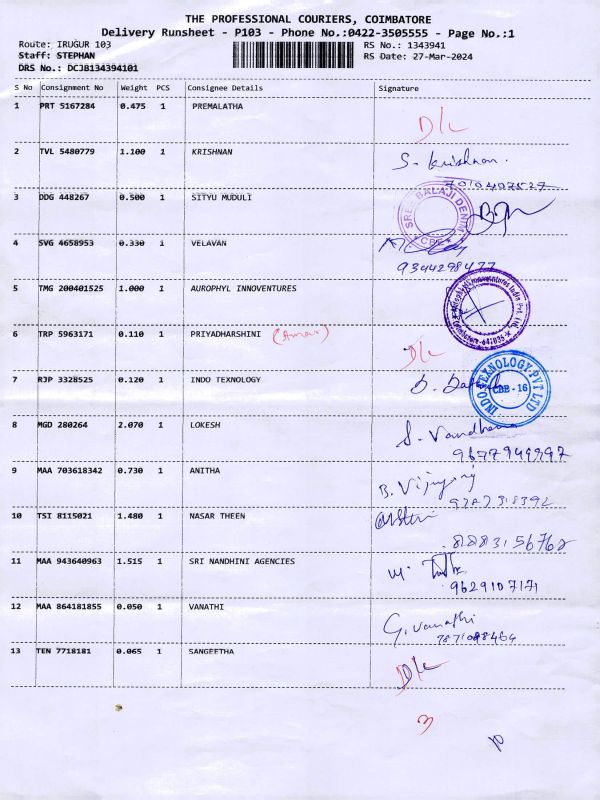 THE PROFESSIONAL COURIERS, COIMBATORE
Delivery Runsheet - P103 - Phone No.:0422-3505555 - Page No.:1
Route: IRUGUR 103 RS No.: 1343941
Staff: STEPHAN RS Date: 27-Mar-2024
DRS No.: DCJB134394101
S No Consignment No Weight PCS Consignee Details Signature
1 PRT 5167284 0.475 1 PREMALATHA D/L
2 TVL 5480779 1.100 1 KRISHNAN S. Krishnan.
3 DDG 448267 0.500 1 SITYU MUDULI SREE BALAJI DENIM CBE
4 SVG 4658953 0.330 1 VELAVAN
9344298477
5 TMG 200401525 1.000 1 AUROPHYL INNOVENTURES
6 TRP 5963171 0.110 1 PRIYADHARSHINI D/L
7 RJP 3328525 0.120 1 INDO TEXNOLOGY INDO TEXNOLOGY PVT LTD CBE - 16
8 MGD 280264 2.070 1 LOKESH S. Vandhana
9 MAA 703618342 0.730 1 ANITHA
10 TSI 8115021 1.480 1 NASAR THEEN
11 MAA 943640963 1.515 1 SRI NANDHINI AGENCIES
9629107171
12 MAA 864181855 0.050 1 VANATHI G. Vanathi
13 TEN 7718181 0.065 1 SANGEETHA D/L
3
10